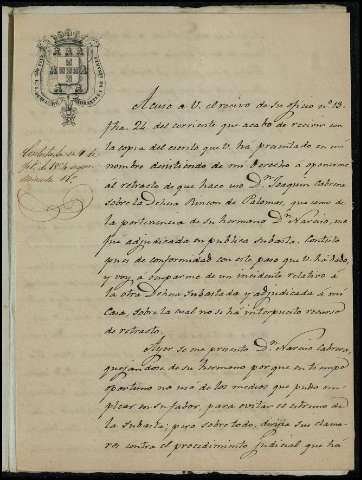 Acuso a V. el recivo de su oficio nº 13
fha 24 del corriente que acabo de recivir con
la copia del escrito que V. ha presentado en mi
nombre desistiendo de mi derecho a oponerme
al retracto de que hace uso Dn. Joaquin Cabrera
sobre la Dehesa Rincon de Palomas, que como de
la pertenencia de su hermano Dn. Narciso, me
fue adjudicada en publica subasta. Contesto
pues de conformidad con este paso que V. ha dado,
y voy a ocuparme de un incidente relativo á
la otra Dehesa subastada y adjudicada á mi
Casa, sobre la cual no se há interpuesto recurso
de retracto.
Ayer se me presentó Dn. Narciso Cabrera,
quejandose de su hermano por que en tiempo
oportuno no uso de los medios que pudo em-
plear en su fabor, para evitar el estremo de
la Subasta; pero sobre todo, dirigia sus clamo-
res contra el procedimiento judicial que há
Contestada en 4 de